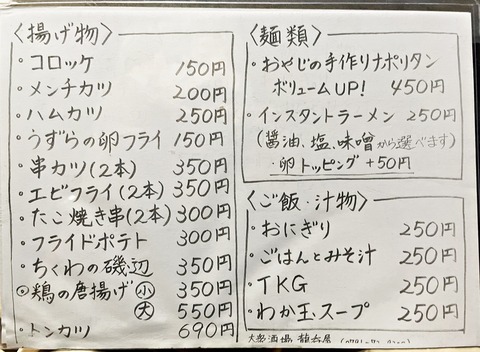 〈揚げ物〉
・コロッケ 150円
・メンチカツ 200円
・ハムカツ 250円
・うずらの卵フライ 150円
・串カツ(2本) 350円
・エビフライ(2本) 350円
・たこ焼き串(2本) 300円
・フライドポテト 300円
・ちくわの磯辺 350円
◎鶏の唐揚げ 小 350円
大 550円
・トンカツ 690円
〈麺類〉
・おやじの手作りナポリタン
ボリュームUP! 450円
・インスタントラーメン 250円
(醤油、塩、味噌から選べます)
・卵トッピング +50円
〈ご飯・汁物〉
・おにぎり 250円
・ごはんとみそ汁 250円
・TKG 250円
・わか玉スープ 250円
大衆酒場